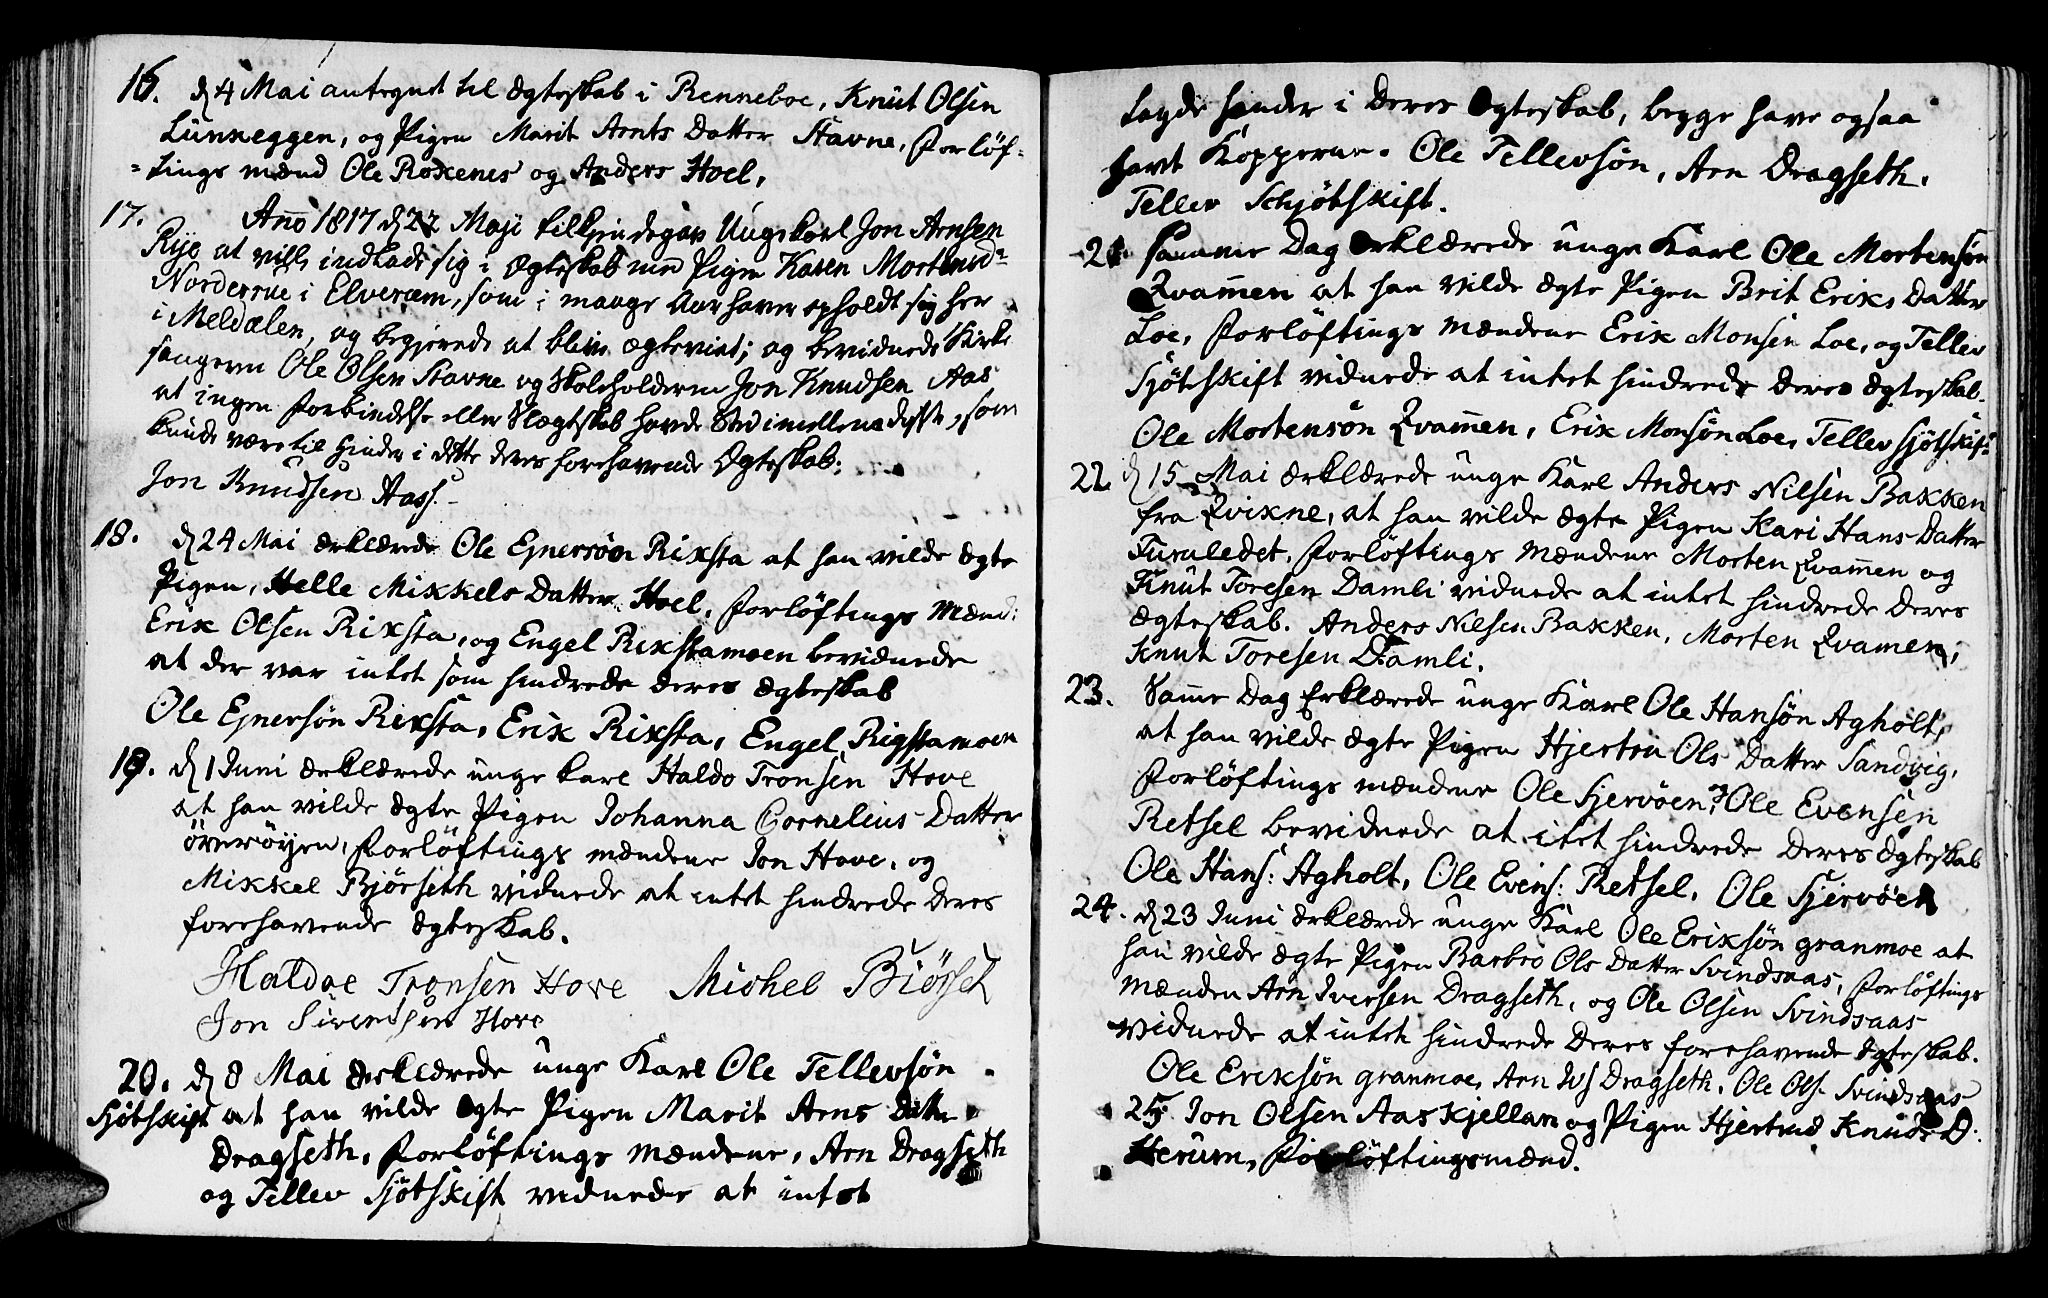 16. d 4 Mai antegnet til Ægteskab i Renneboe, Knut Olsen
Lunkeggen, og Pigen Marit Arnts Datter Stavne, Forløf-
-tings mænd Ole Roxenes og Anders Hoel,
17. Ano 1817 d 22 Maji tilkjendegav Ungekarl Jon Arnsen
Rye at ville indlade sig i Ægteskab med Pigen Karen Mortensd-
Norderrue i Elveræm, som i mange Aar haver opholdt sig her
i Meldalen, og begjerede at blive ægteviet; og bevidnede Kirke
sangeren Ole Olsen Stavne og Skoleholderen Jon Knudsen Aas
at ingen Forbindelse eller Slægtskab havde Sted imellem disse, som
kunde være til Hinder i dette deres forehavende Ægteskab:
Jon Knudsen Aass.
18. d 24 Mai ærklærede Ole Ejnersøn Rixsta at han vilde Ægte
Pigen, Helle Mikkels Datter Hoel, Forløftings Mænd:
Erix Olsen Rixsta, og Engel Rixstamoen bevidnede
at der var intet som hindrede deres Ægteskab
Ole Ejnersøn Rixsta, Erix Rixsta, Engel Rigstamoen
19. d 1 Juni ærklærede unge karl Haldo Tronsen Hove
at han vilde Ægte Pigen Johanna Cornelius Datter
överøyen, Forløftings mændene Jon Hove, og
Mikkel Bjørseth vidnede at intet hindrede Deres
forehavende Ægteskab.
Haldoe Tronsen Hove Michel Biörset
Jon Sivendsen Hove
20. d 8 Mai ærklærede unge Karl Ole Tellevsøn
Sjøtskift at han vilde Ægte Pigen Marit Arns Datter
Dragseth, Forløftings Mændene, Arn Dragseth
og Tellev Sjøtskift vidnede at intet
lagde hinder i Deres Ægteskab, begge have ogsaa
havt Kopperne. Ole Tellevsøn, Arn Dragseth,
Tellev Schjøtskift.
21. samme Dag ærklærede unge Karl Ole Mortensøn
Qvamen at han vilde Ægte Pigen Brit Eriks Datter
Loe, Forløftings Mændene Erik Monsen Loe, og Tellev
Sjøtskift vidnede at intet hindrede deres Ægteskab.
Ole Mortensøn Qvamen, Erix Monsøn Loe, Tellev Sjøtskift
22. d 15 Mai ærklærede unge Karl Anders Nilsen Bakken
fra Qvixne, at han vilde Ægte Pigen Kari Hans Datter
Forløftings Mændene Morten Qvamen og
Knut Toresen Damli vidnede at intet hindrede Deres
Ægteskab. Anders Nilsen Bakken, Morten Qvamen,
Knut Toresen Damli.
23. Same Dag Erklærede unge Karl Ole Hansøn Agholt,
at han vilde Ægte Pigen Hjertru Ols Datter Sandvig,
Forløftings mændene Ole Sjervøen, og Ole Evensen
Retsel bevidnede at itet hindrede Deres Ægteskab
Ole Hans: Agholt, Ole Evens: Retsel, Ole Sjervøen
24. d 23 Juni ærklærede unge Karl Ole Eriksøn granmoe at
han vilde Ægte Pigen Barbro Ols Datter Svindsaas, Forløftings
Mænden Arn Iversen Dragseth, og Ole Olsen Svindsaas
vidnede at intet hindrede Deres forehavende Ægteskab.
Ole Eriksøn granmoe, Arn Ivs Dragseth. Ole Ols. Svindsaas
25. Jon Olsen Aaskjellan og Pigen Hjertrud Knuds D:
Herum, Forløftingsmænd.